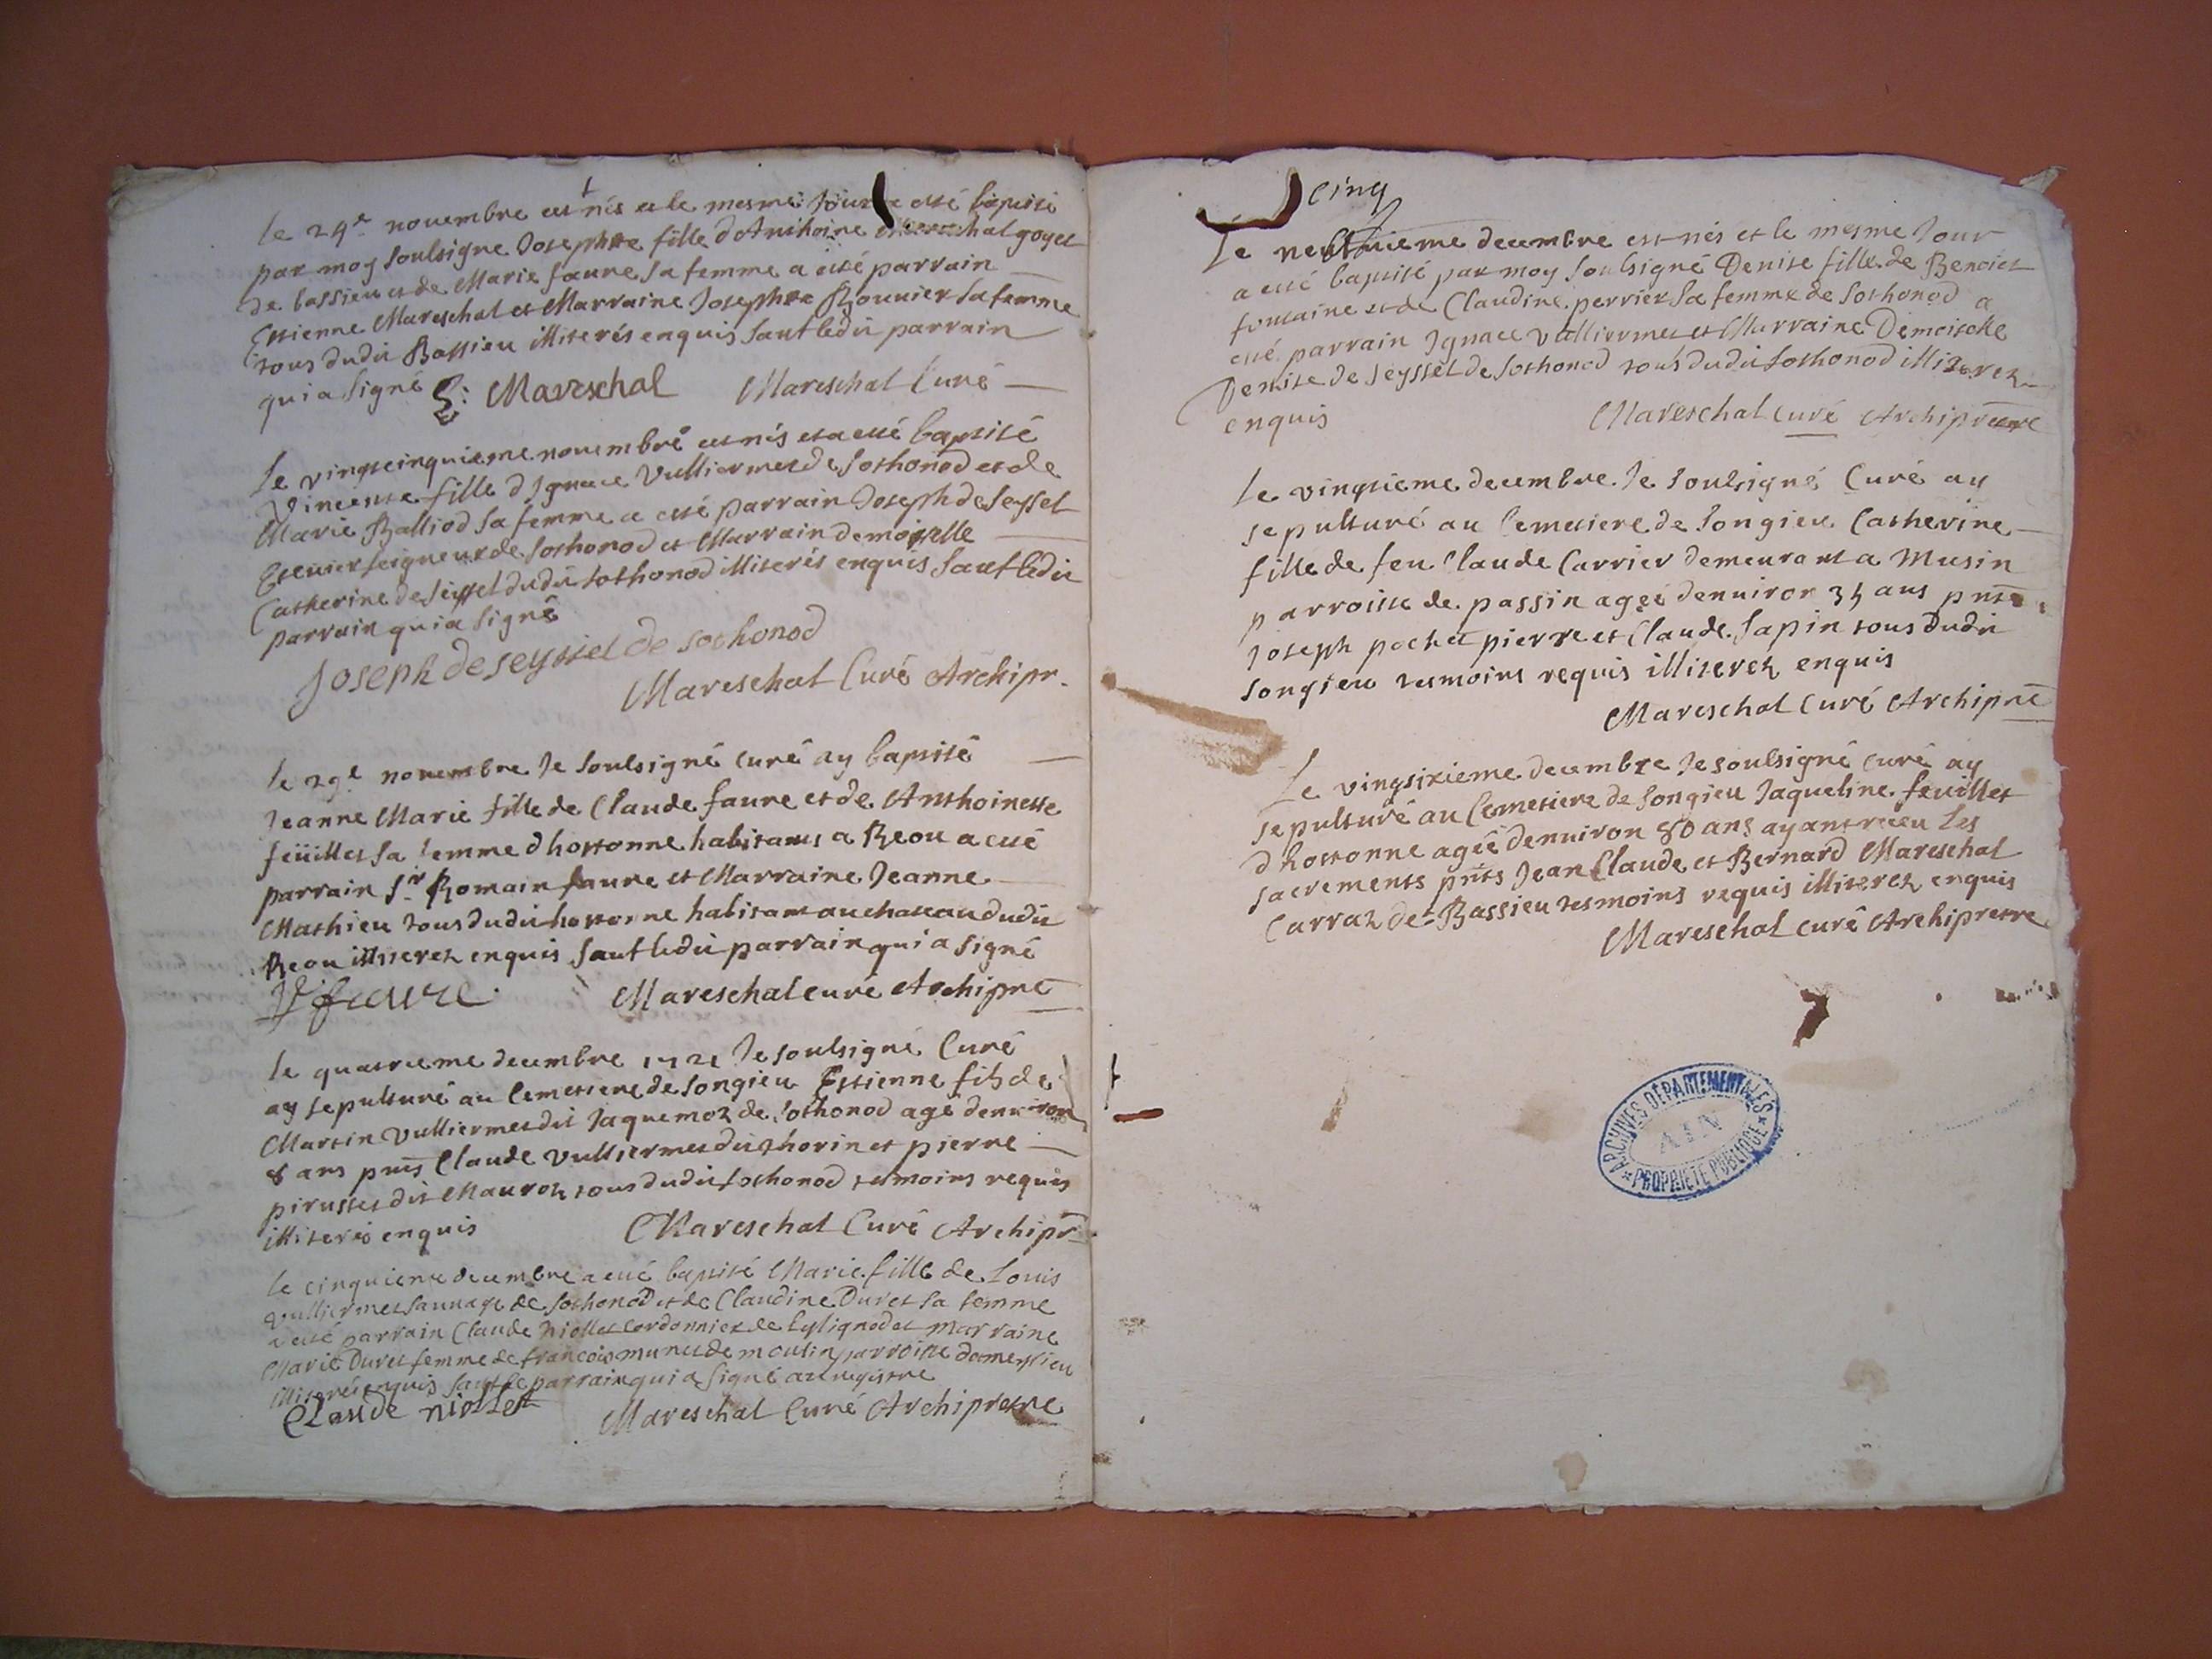 le 24e novembre est nés et le mesme Jour a esté baptisé
par moy soubsigne Josephte fille d Anthoine Mareschal goyet
de bassieu et de Marie faure sa femme a esté parrain
Estienne Mareschal et Marraine Josephte Bouvier sa femme
tous dudit Bassieu illiterés enquis sauf ledit parrain
qui a signé E: Mareschal Mareschal Curé
Le vingtcinquieme novembre est nés et a esté baptisé
Vincente fille d Ignace Vulliermet de Sothonod et de
Marie Balliod sa femme a esté parrain Joseph de Seyssel
Escuier seigneur de Sothonod et Marrain demoiselle
Catherine de Seissel dudit Sothonod illiterés enquis sauf ledit
parrain qui a signé
Joseph de seyssel de sothonod
Mareschal Curé Archipr.
le 29e novembre Je soubsigné curé ay baptisé
Jeanne Marie fille de Claude faure et de Anthoinette
feüillet sa femme d hostonne habitants a Beou a esté
parrain Sr Romain faure et Marraine Jeanne
Mathieu tous dudit hostonne habitant au chateau dudit
Beou illiterez enquis sauf ledit parrain qui a signé
R faure Mareschal curé Archipre
le quatrieme decembre 1721 Je soubsigné Curé
ay sepulturé au Cemettiere de Songieu Estienne fils de
Martin Vulliermet dit Jaquemoz de Sothonod agé denviron
8 ans pnts Claude Vulliermet dit thorin et pierre
pirustet dit Mauroz tous dudit Sothonod tesmoins requis
illiterés enquis Mareschal Curé Archipr
le cinquieme decembre a esté baptisé Marie fille de Louis
Vulliermet sauvage de Sothonod et de Claudine Duret sa femme
a esté parrain Claude Niollet Cordonnier de Lylignod et marraine
Marie Duret femme de francois munet de moulin parroisse damesieu
illiterés enquis sauf le parrain qui a signé au registre
Claude niollet Mareschal Curé Archiprestre
cinq
Le neufvieme decembre est nés et le mesme Jour
a esté baptisé par moy soubsigné Denise fille de Benoict
fontaine et de Claudine perrier sa femme de Sothonod a
esté parrain Ignace Vulliermet et Marraine Demoiselle
Denise de Seyssel de Sothonod tous dudit Sothonod illiterez
enquis Mareschal Curé Archiprestre
Le vingtieme decembre Je soubsigné Curé ay
sepulturé au Cemetiere de Songieu Catherine
fille de feu Claude Carrier demeurant a Musin
parroisse de passin agéé denviron 35 ans pnts
Joseph pochet pierre et Claude Sapin tous dudit
Songieu tesmoins requis illiterez enquis
Mareschal Curé Archipre
Le vingtsixieme decembre Je soubsigné curé ay
sepulturé au Cemetiere de Songieu Jaqueline feuillet
d hostonne agéé denviron 80 ans ayant receu les
sacrements pnts Jean Claude et Bernard Mareschal
Carraz de Bassieu tesmoins requis illiterez enquis
Mareschal curé Archiprestre
ARCHIVES DÉPARTEMENTALES
AIN
PROPRIÉTÉ PUBLIQUE